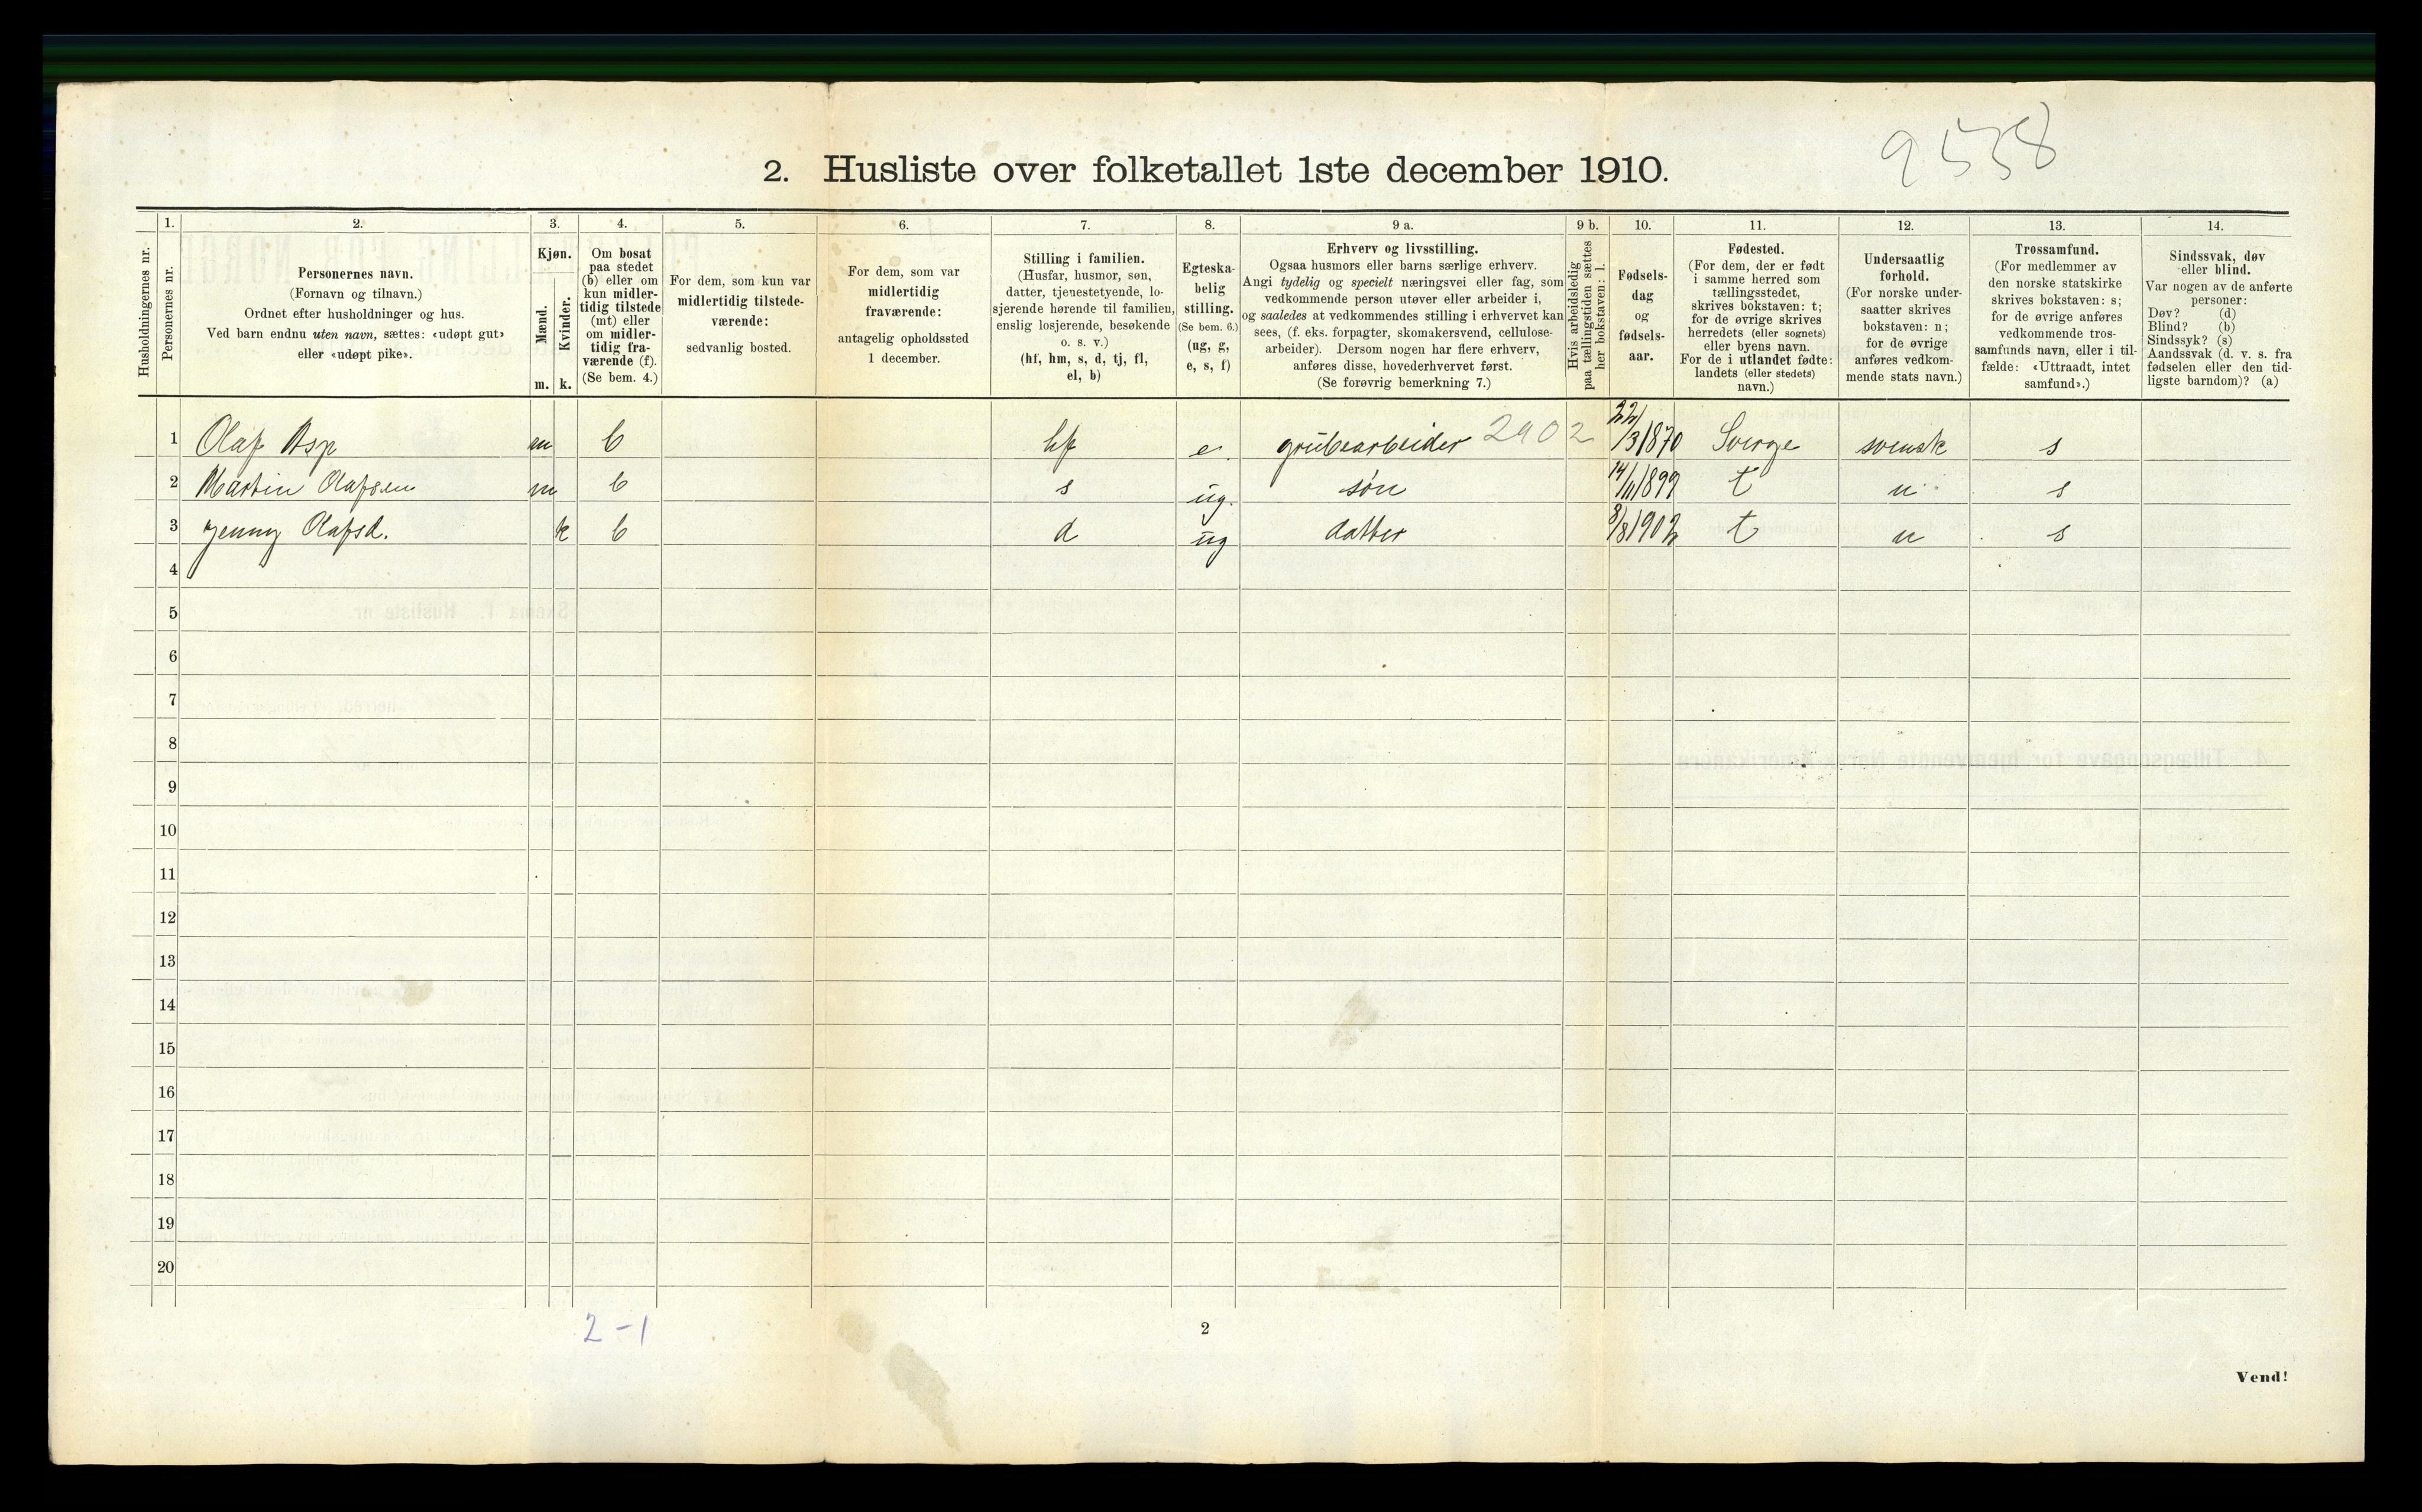 9538
2. Husliste over folketallet 1ste december 1910.
Husholdningernes nr.
1.
Personernes nr.
2.
Personernes navn.
(Fornavn og tilnavn.)
Ordnet efter husholdninger og hus.
Ved barn endnu uten navn, sættes: «udøpt gut»
eller «udøpt pike».
3.
Kjøn.
Mænd.
Kvinder.
m. k.
4.
Om bosat
paa stedet
(b) eller om
kun midler-
tidig tilstede
(mt) eller
om midler-
tidig fra-
værende (f).
(Se bem. 4.)
5.
For dem, som kun var
midlertidig tilstede-
værende:
sedvanlig bosted.
6.
For dem, som var
midlertidig
fraværende:
antagelig opholdssted
1 december.
7.
Stilling i familien.
(Husfar, husmor, søn,
datter, tjenestetyende, lo-
sjerende hørende til familien,
enslig losjerende, besøkende
o. s. v.)
(hf, hm, s, d, tj, fl,
el, b)
8.
Egteska-
belig
stilling.
(Se bem. 6.)
(ug, g,
e, s, f)
9 a.
Erhverv og livsstilling.
Ogsaa husmors eller barns særlige erhverv.
Angi tydelig og specielt næringsvei eller fag, som
vedkommende person utøver eller arbeider i,
og saaledes at vedkommendes stilling i erhvervet kan
sees, (f. eks. forpagter, skomakersvend, cellulose-
arbeider). Dersom nogen har flere erhverv,
anføres disse, hovederhvervet først.
(Se forøvrig bemerkning 7.)
9 b.
Hvis arbeidsledig
paa tællingstiden sættes
her bokstaven: l.
10.
Fødsels-
dag
og
fødsels-
aar.
11.
Fødested.
(For dem, der er født
i samme herred som
tællingsstedet,
skrives bokstaven: t;
for de øvrige skrives
herredets (eller sognets)
eller byens navn.
For de i utlandet fødte:
landets (eller stedets)
navn.)
12.
Undersaatlig
forhold.
(For norske under-
saatter skrives
bokstaven: n;
for de øvrige
anføres vedkom-
mende stats navn.)
13.
Trossamfund.
(For medlemmer av
den norske statskirke
skrives bokstaven: s;
for de øvrige anføres
vedkommende tros-
samfunds navn, eller i til-
fælde: «Uttraadt, intet
samfund».)
14.
Sindssvak, døv
eller blind.
Var nogen av de anførte
personer:
Døv? (d)
Blind? (b)
Sindssyk? (s)
Aandssvak (d. v. s. fra
fødselen eller den tid-
ligste barndom)? (a)
1 Olaf Asp m b hf e. grubearbeider 2902 22/3 1870 Sverge svensk s
2 Martin Olafsen m b s ug. søn 14/11 1899 t n s
3 Jenny Olafsd. k b d ug datter 8/8 1902 t n s
4
5
6
7
8
9
10
11
12
13
14
15
16
17
18
19
20
2-1
2
Vend!